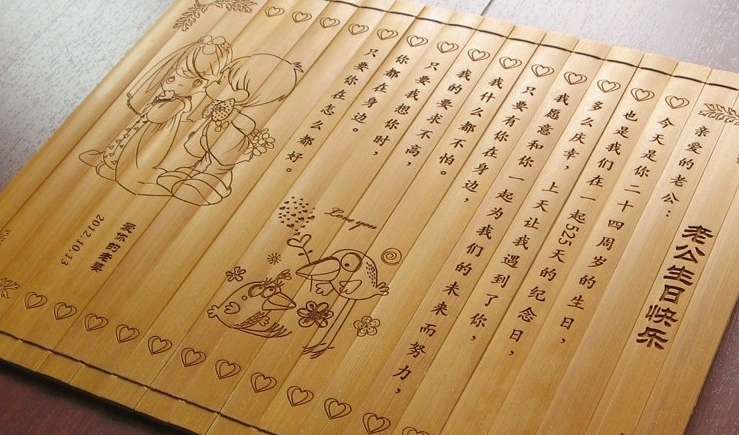 老公生日快乐
亲爱的老公：
今天是你二十四周岁的生日，
也是我们在一起525天的纪念日，
多么庆幸，上天让我遇到了你，
我愿意和你一起为我们的未来而努力，
只要有你在身边，
我什么都不怕。
我的要求不高，
只要我想你时，
你都在身边。
只要你在怎么都好。
Love you
爱你的老婆
2012.10.13